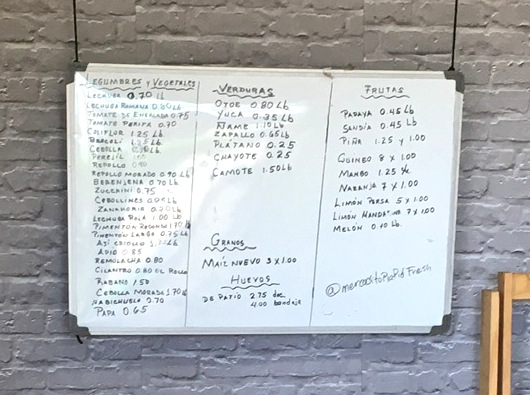 LEGUMBRES y VEGETALES
LECHUGA 0.70 Lb
LECHUGA ROMANA 0.80 Lb
TOMATE DE ENSALADA 0.75
TOMATE PERITA 0.70
COLIFLOR 1.25 Lb
BROCOLI 1.25 Lb
CEBOLLA Lb
PEREJIL
REPOLLO
REPOLLO MORADO 0.90 Lb
BERENJENA 0.70 Lb
ZUCCHINI 0.75
CEBOLLINES Lb
ZANAHORIA Lb
LECHUGA ROLA 1.00 Lb
PIMENTON 1.70
PIMENTON LARGO 0.75 Lb
AJI CRIOLLO Lb
APIO 0.85
REMOLACHA 0.80
CILANTRO 0.80 EL ROLLO
RABANO 1.50
CEBOLLA MORADA 1.70 Lb
HABICHUELA 0.70
PAPA 0.65
VERDURAS
OTOE 0.80 Lb
YUCA 0.35 Lb
ÑAME 1.10 Lb
ZAPALLO 0.65 Lb
PLÁTANO 0.25
CHAYOTE 0.25
CAMOTE 1.50 Lb
GRANOS
MAIZ NUEVO 3 X 1.00
HUEVOS
DE PATIO 2.75 doc
4.00 bandeja
FRUTAS
PAPAYA 0.45 Lb
SANDIA 0.45 Lb
PIÑA 1.25 y 1.00
GUINEO 8 X 1.00
MANGO 1.25
NARANJA 7 X 1.00
LIMÓN PERSA 5 X 1.00
LIMÓN MANDARINA 7 X 1.00
MELÓN 0.40 Lb.
@mercaditoRapidFresh